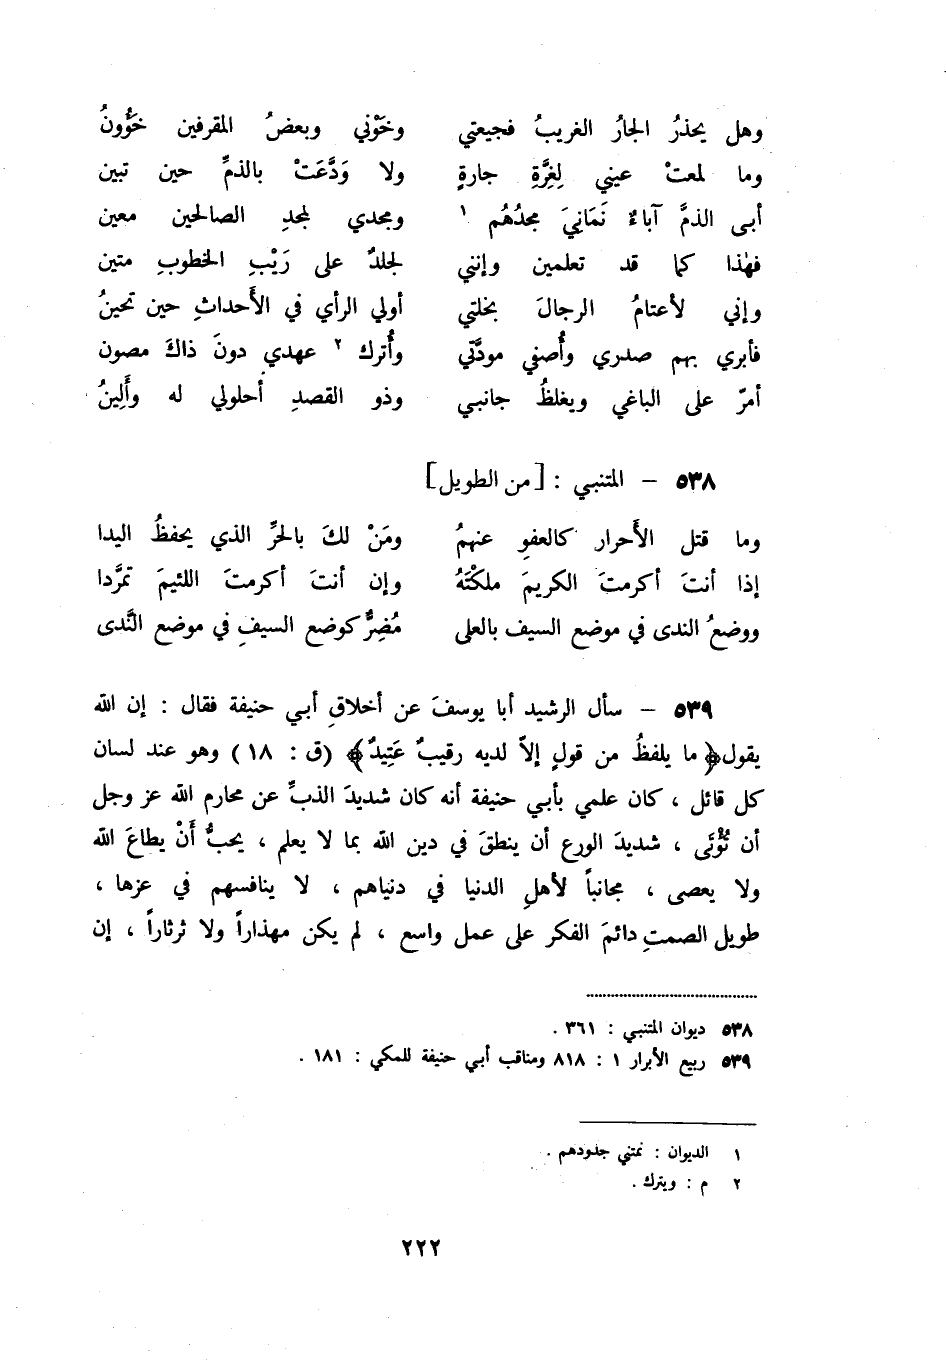 وهل يحذرُ الجارُ الغريبُ فجيعتي وخَوْني وبعضُ المقرفين خَؤُونُ
وما لمعتْ عيني لِغِرَّةِ جارةٍ ولا وَدَّعَتْ بالذمِّ حين تبين
أبى الذمَّ آباءٌ نَمَانِيَ مجدُهُم ١ ومجدي لمجدِ الصالحين معين
فهٰذا كما قد تعلمين وإنني لجلدٌ على رَيْبِ الخطوبِ متين
وإني لأعتامُ الرجالَ بخلتي أولي الرأي في الأَحداثِ حين تحينُ
فأبري بهم صدري وأُصفي مودَّتي وأُترك ٢ عهدي دونَ ذاكَ مصون
أمرّ على الباغي ويغلظُ جانبي وذو القصدِ أحلولي له وأَلِينُ
٥٣٨ – المتنبي : [من الطويل]
وما قتل الأَحرار كالعفوِ عنهمُ ومَنْ لكَ بالحرِّ الذي يحفظُ اليدا
إذا أنتَ أكرمتَ الكريمَ ملكْتَهُ وإن أنتَ أكرمتَ اللئيمَ تمرَّدا
ووضعُ الندى في موضع السيف بالعلى مُضِرٌّ كوضع السيفِ في موضع النَّدى
٥٣٩ – سأل الرشيد أبا يوسفَ عن أخلاقِ أبي حنيفة فقال : إن الله
يقول ﴿ ما يلفظُ من قولٍ إلاّ لديه رقيبٌ عَتِيدٌ ﴾ (ق : ١٨) وهو عند لسان
كل قائل ، كان علمي بأبي حنيفة أنه كان شديدَ الذبِّ عن محارم الله عز وجل
أن تُؤْتَى ، شديدَ الورع أن ينطقَ في دين الله بما لا يعلم ، يحبُّ أَنْ يطاعَ الله
ولا يعصى ، مجانباً لأهلِ الدنيا في دنياهم ، لا ينافسهم في عزها ،
طويل الصمتِ دائمَ الفكر على عمل واسع ، لم يكن مهذاراً ولا ثرثاراً ، إن
٥٣٨ ديوان المتنبي : ٣٦١ .
٥٣٩ ربيع الأبرار ١ : ٨١٨ ومناقب أبي حنيفة للمكي : ١٨١ .
١ الديوان : نمتني جدودهم .
٢ م : ويترك .
٢٢٢